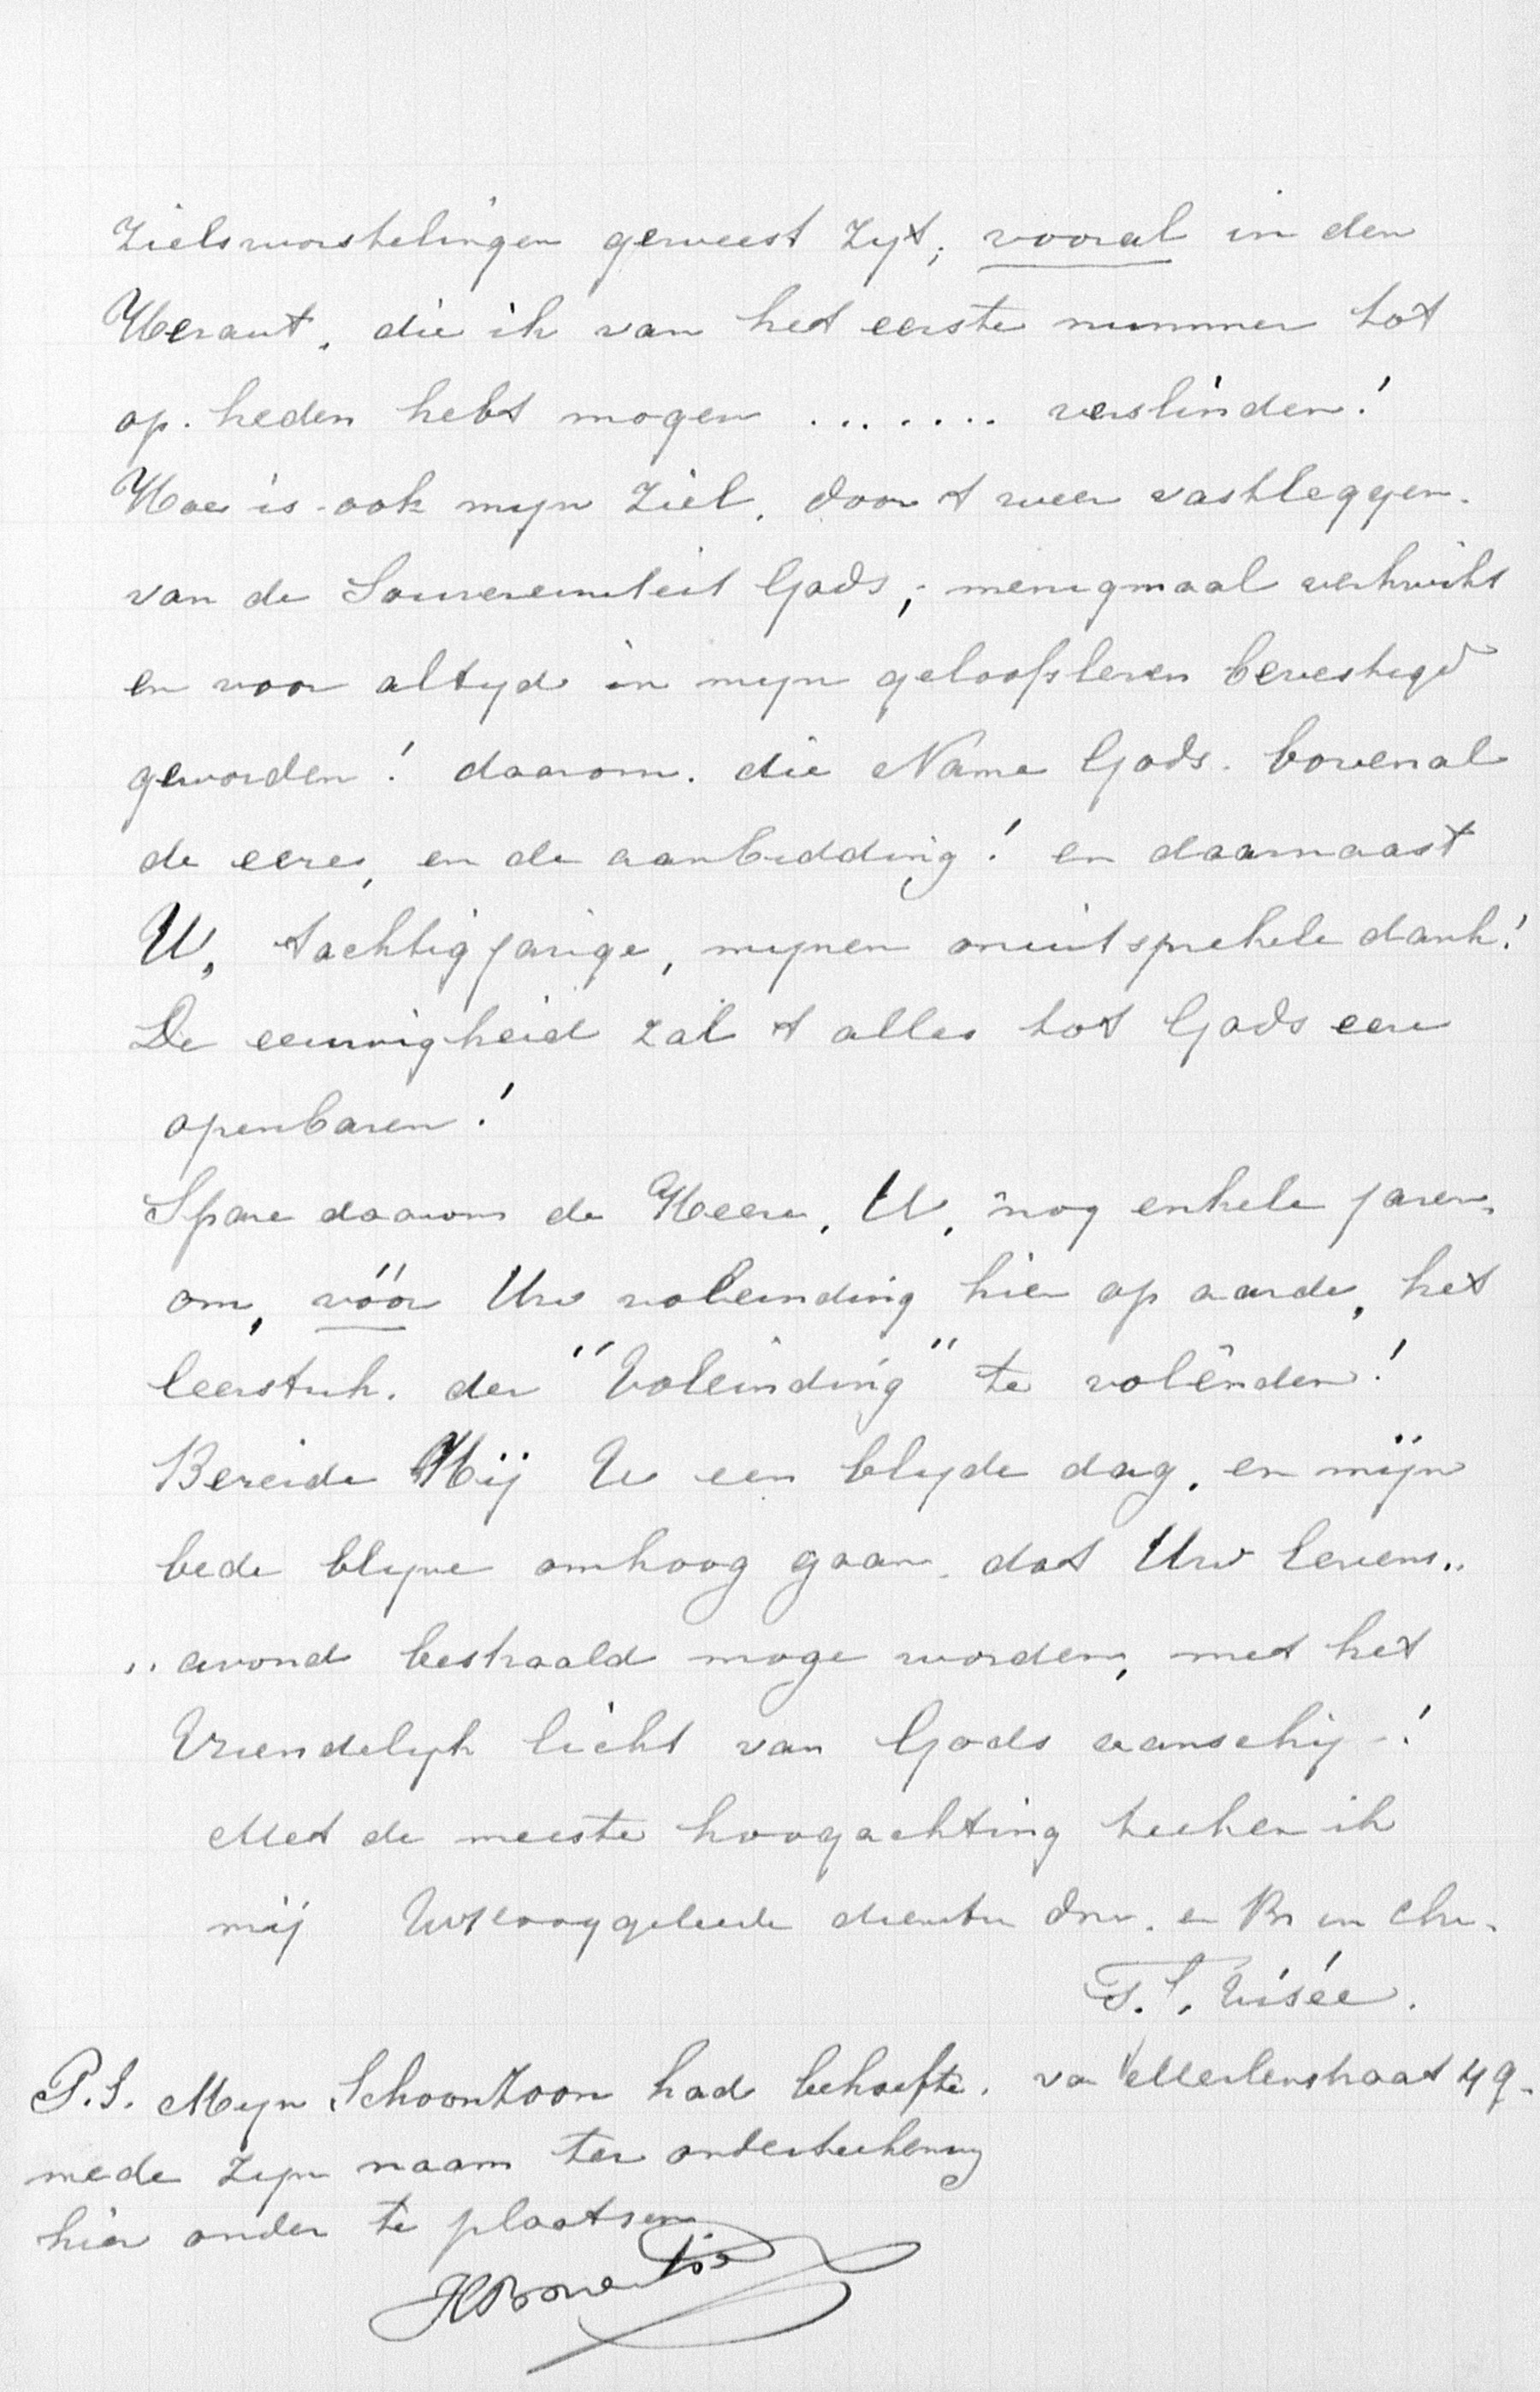 Zielsworstelingen geweest zyt; vooral in den
Heraut, die ik van het eerste nummer tot
op heden hebt mogen ....... verslinden!
Hoe is ook myn Ziel, door 't weer vastleggen
van de Souvereiniteit Gods; menigmaal verkwikt
en voor altyd in myn geloofsleven bevestigd
geworden! daarom. die Name Gods. bovenal
de eere, en de aanbidding! en daarnaast
U, tachtigjarige, mynen onuitsprekele dank!
De eeuwigheid zal 't alles tot Gods eere
openbaren!
Spare daarom de Heere, U, nog enkele jaren,
om, vóór Uw voleinding hier op aarde, het
leerstuk. der "Voleinding" te volênden!
Bereide Hij U een blyde dag, en mijn
bede blyve omhoog gaan. dat Uw levens„
„avond bestraald moge worden, met het
Vriendelyk licht van Gods aanschij-!
Met de meeste hoogachting teeken ik
mij UwHooggeleerde dienstw dnr. en Br in Chr.
Visée.
P.S. Myn Schoonzoon had behoefte. va Merlenstraat 49.
mede zyn naam ter onderteekening
hier onder te plaatsen